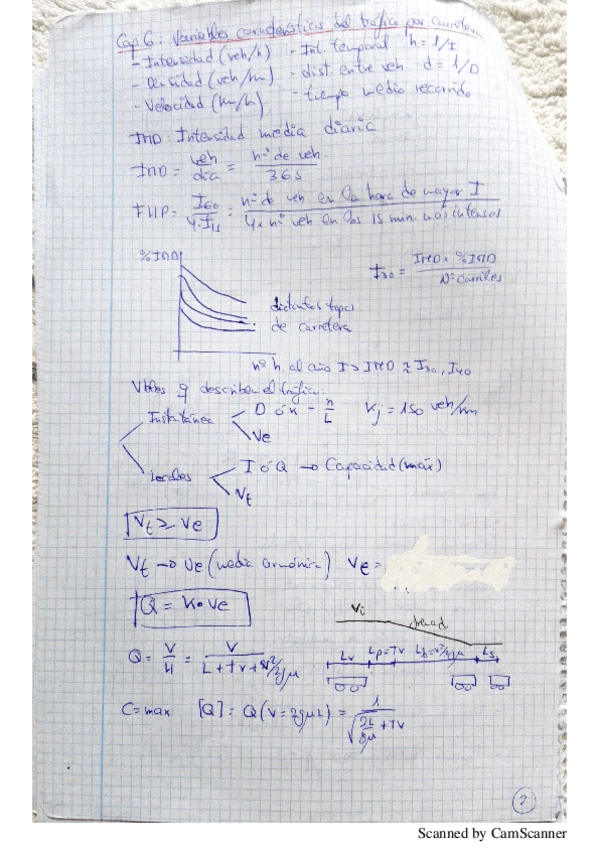 Cap 6: Variables características del tráfico por carretera
- Intensidad (veh/h) - Int. temporal h = 1/I
- Densidad (veh/km) - dist. entre veh. d = 1/D
- Velocidad (km/h) - tiempo medio recorrido
IMD: Intensidad media diaria
IMD = veh/dia = nº de veh./365
FHP = I60/4·I15 = nº de veh en la hora de mayor I/4 x nº veh en los 15 min. más intensos
% IMD
I30 = IMD x % IMD/Nº carriles
distintos tipos
de carretera
nº h. al año I > IMD ≈ I30, I40
Vbles q describen el tráfico:
Instantánea
D ó K = n/L Kj = 150 veh/km
Ve
Locales
I ó Q → Capacidad (máx)
Vt
Vt ≥ Ve
Vt → Ve (media armónica) Ve =
Q = K · Ve
Vi
Q = V/H = V/L + Tv + v²/2gμ
Lv Lp = Tv Lf = v²/2gμ Ls
C = max [Q] = Q (V = 2gμL) = 1/√2L/gμ + Tv
2
Scanned by CamScanner